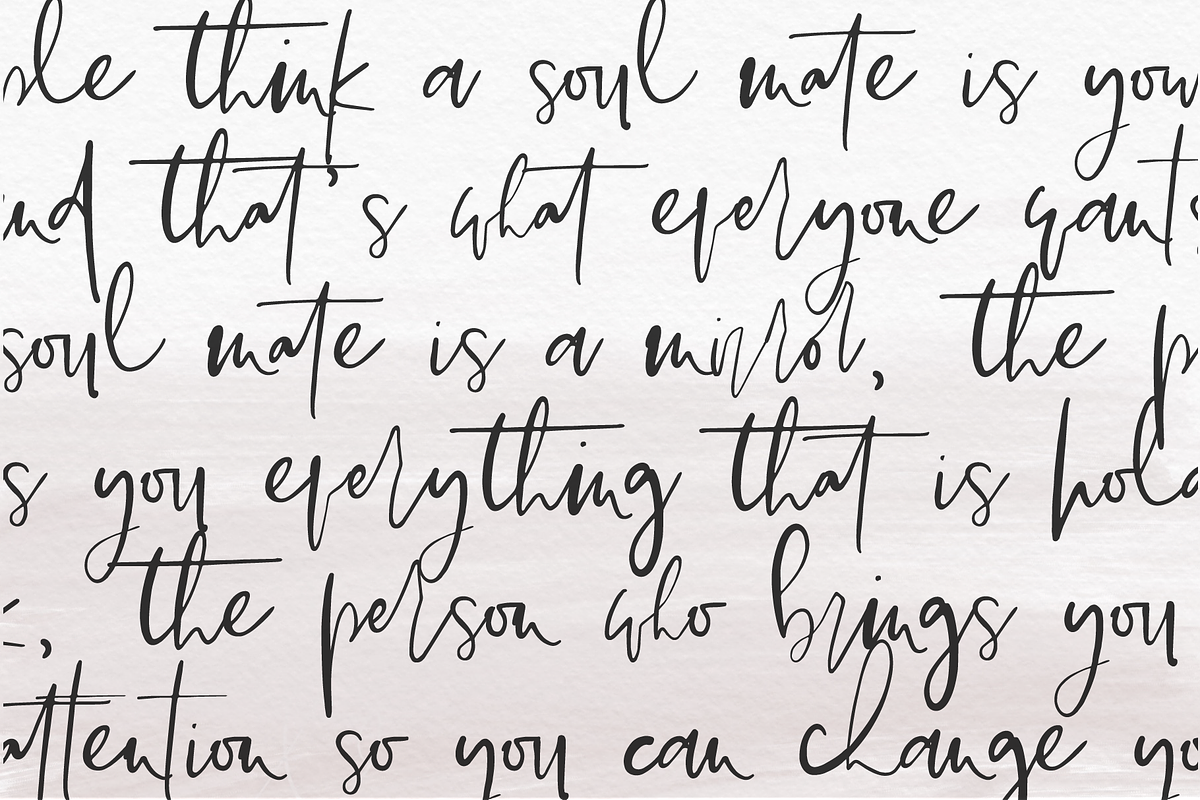 ple think a soul mate is your
and that's what everyone wants
soul mate is a mirror, the p
s you everything that is hold
k, the person who brings you
attention so you can change yo